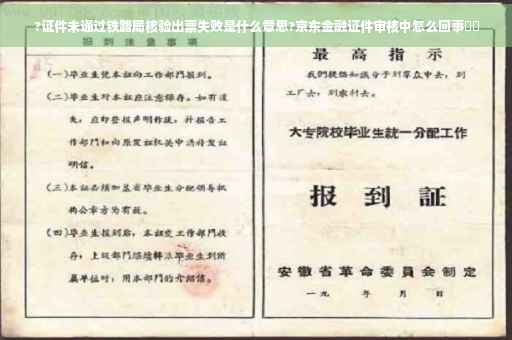 ?证件未通过铁路局核验出票失败是什么意思?京东金融证件审核中怎么回事
报到注意事项
(一)毕业生凭本证向工作部门报到。
(二)毕业生对本证应注意保存。如有遗
失,应即登报声明作废,并报告工
作部门和向原发证机关申请补发证
明信。
(三)本证必须加盖省毕业生分配领导机
构公章方为有效。
(四)毕业生报到后,本证交工作部门收
存;上级部门继续转派毕业生到所
属单位时,用本部门的介绍信。
最高指示
我们提倡知识分子到群众中去,到
工厂去,到农村去。
大专院校毕业生統一分配工作
报到証
安徽省革命委員会制定
一九 年 月 日